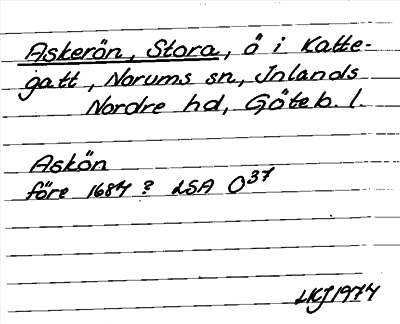 Askerön, Stora, ö i Katte-
gatt, Norums sn, Inlands
Nordre hd, Göteb. l.
Askön
före 1684? LSA O37
LKJ 1974